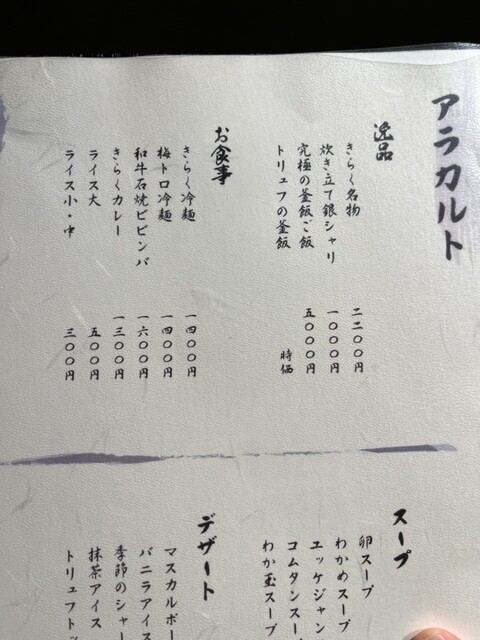 アラカルト
逸品
きらく名物 二二〇〇円
炊き立て銀シャリ 一〇〇〇円
究極の釜飯ご飯 五〇〇〇円
トリュフの釜飯 時価
お食事
きらく冷麺 一四〇〇円
梅トロ冷麺 一四〇〇円
和牛石焼ビビンバ 一六〇〇円
きらくカレー 一三〇〇円
ライス大 五〇〇円
ライス小・中 三〇〇円
スープ
卵スープ
わかめスープ
エッケジャン
コムタンスー
わか玉スープ
デザート
マスカルポー
バニラアイス
季節のシャー
抹茶アイス
トリュフトッ